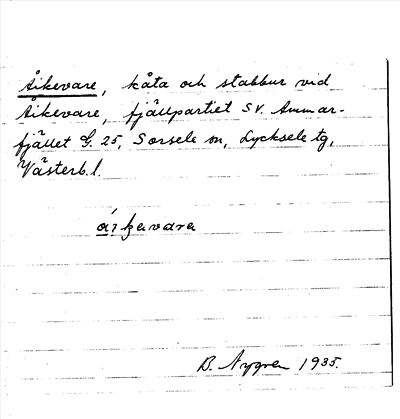 Åikevare, kåta och stabbur vid
Åikevare, fjällpartiet SV. Ammar-
fjället G. 25, Sorsele sn, Lycksele tg,
Västerb. l.
B. Nygren 1935.